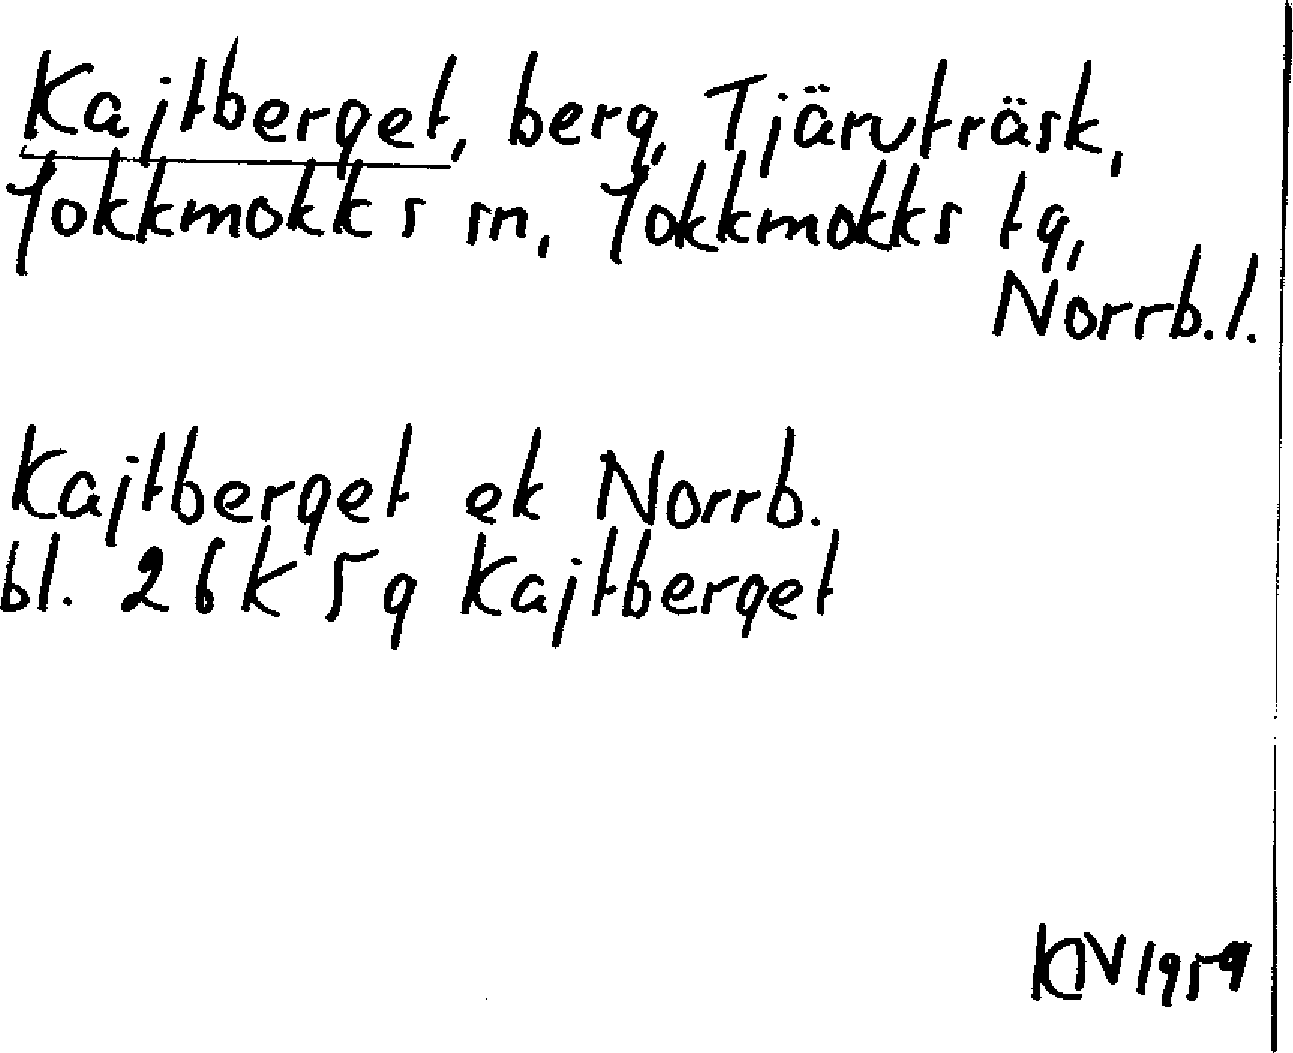 Kajtberget, berg, Tjäruträsk,
Jokkmokks sn, Jokkmokks tg,
Norrb. l.
Kajtberget ek Norrb.
bl. 26K 5g Kajtberget
KJV 1959